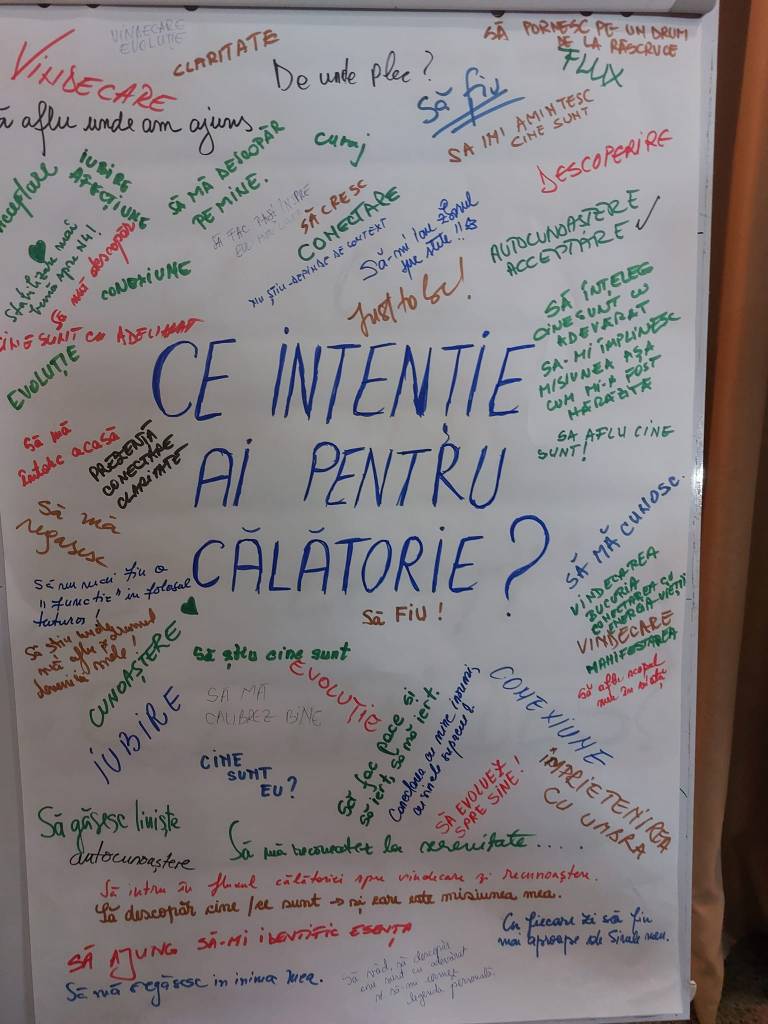 VINDECARE
EVOLUȚIE
VINDECARE
CLARITATE
De unde plec?
SĂ PORNESC PE UN DRUM
DE LA RĂSCRUCE
FLUX
Să fiu
SA IMI AMINTESC
CINE SUNT
ă aflu unde am ajuns
IUBIRE
AFECȚIUNE
SĂ MĂ DESCOPĂR
PE MINE.
curaj
DESCOPERIRE
SĂ FAC PAȘI ÎNSPRE
SĂ CRESC
CONECTARE
NU ȘTIU - DEPINDE DE CONTEXT
Să-mi iau zborul
spre stele!!
AUTOCUNOAȘTERE
ACCEPTARE ✓
acceptare
Stabilizare mai
bună spre N4!
Să mă descopăr
CONEXIUNE
Just to be!
SĂ ÎNTELEG
CINE SUNT CU
ADEVĂRAT
SA-MI ÎMPLINESC
MISIUNEA AȘA
CUM MI-A FOST
HĂRĂZITĂ
CINE SUNT CU ADEVĂRAT
EVOLUȚIE
CE INTENȚIE
AI PENTRU
CĂLĂTORIE?
SA AFLU CINE
SUNT!
Să mă
întorc acasă
PREZENȚĂ
CONECTARE
CLARITATE
Să mă
regasesc
SĂ MĂ CUNOSC.
Să nu mai fiu o
"funcție" in folosul
tuturor!
SĂ FIU!
VINDECAREA
BUCURIA
CONECTAREA CU
ENERGIA VIEȚII
VINDECARE
MANIFESTAREA
Să aflu scopul
meu în viață!
Să știu
CUNOAȘTERE
Să știu cine sunt
EVOLUȚIE
IUBIRE
SĂ MĂ
CALIBREZ BINE
CINE
SUNT
EU?
Să fac pace și
să iert, să mă iert.
Conectarea cu mine însumi,
CONEXIUNE
SĂ EVOLUEZ
SPRE SINE!
ÎMPRIETENIREA
CU UMBRA
Să găsesc liniște
autocunoaștere
Să mă reconectez la serenitate.....
Să intru în fluxul călătoriei spre vindecare și recunoaștere.
Să descopăr cine/ce sunt → și care este misiunea mea.
SĂ AJUNG SĂ-MI IDENTIFIC ESENȚA
Cu fiecare zi să fiu
mai aproape de Sinele meu.
Să mă regăsesc in inima mea.
Să văd, să descopăr
cine sunt cu adevărat
și să-mi urmez
legenda personală